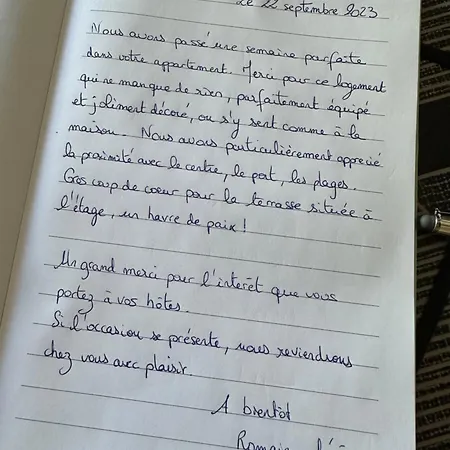 Le 22 septembre 2023
Nous avons passé une semaine parfaite
dans votre appartement. Merci pour ce logement
qui ne manque de rien, parfaitement équipé
et joliment décoré, ou s'y sent comme à la
maison. Nous avons particulièrement apprécié
la proximité avec le centre, le port, les plages.
Gros coup de coeur pour la terrasse située à
l'étage, un havre de paix !
Un grand merci pour l'intérêt que vous
portez à vos hôtes.
Si l'occasion se présente, nous reviendrons
chez vous avec plaisir
A bientôt